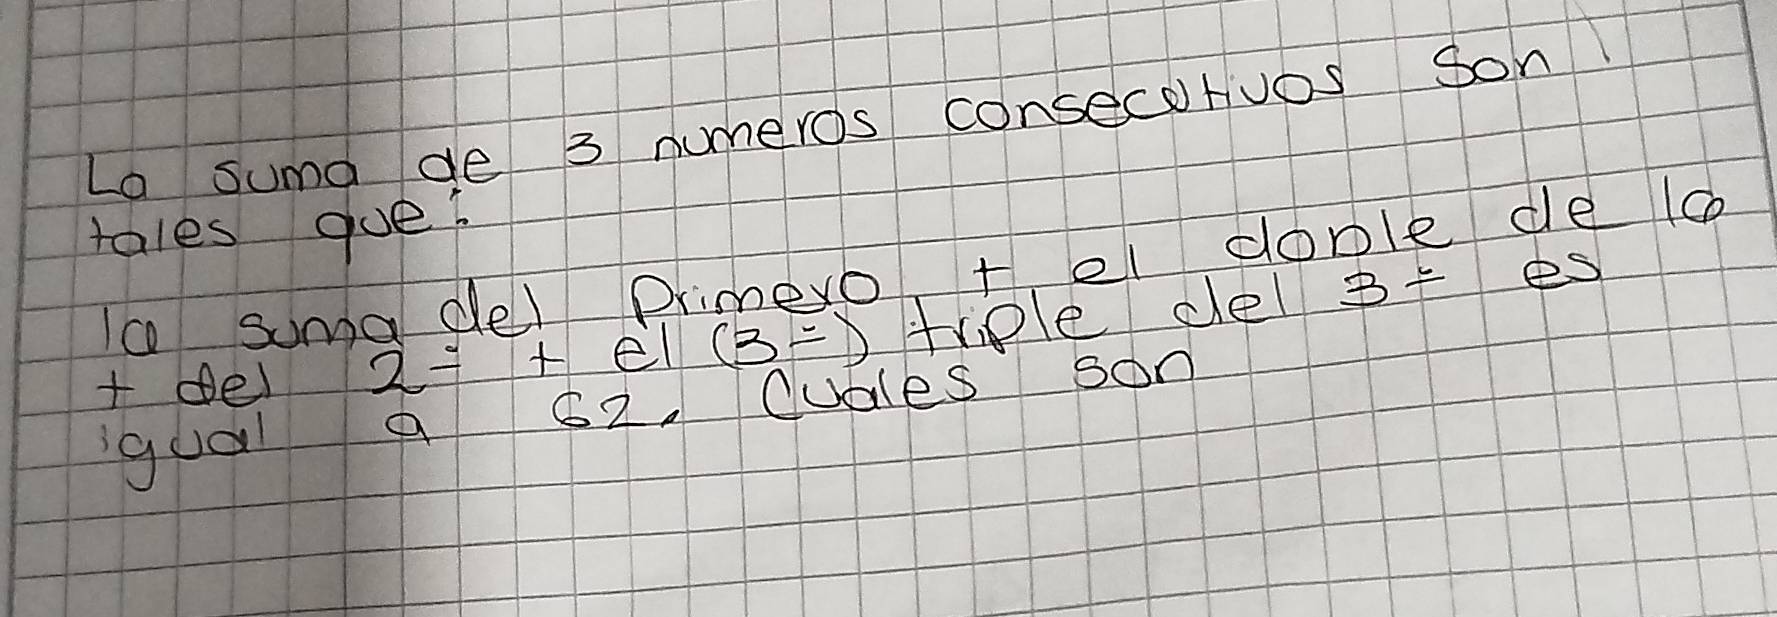 La suma de 3 numeros consecutivos son
tales que:
la suma del Primero + el doble de la
+ del 2º + el (3º) triple del 3º es
igual a 62. Cuales son